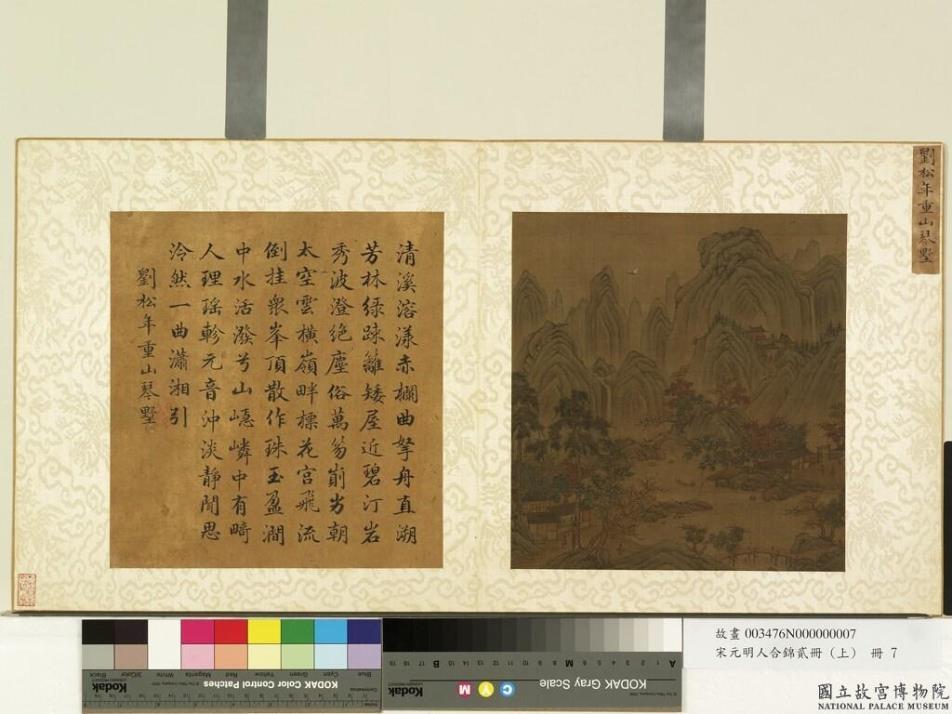 劉松年重山琴墅
清溪溶漾赤欄曲拏舟直溯
芳林綠疎籬矮屋近碧汀岩
秀波澄絶塵俗萬笏崱屴朝
太空雲橫嶺畔標花宮飛流
倒挂衆峯頂散作珠玉盈澗
中水活潑兮山嶾嶙中有畸
人理瑤軫元音沖淡靜閒思
泠然一曲瀟湘引
劉松年重山琴墅
故畫 003476N000000007
宋元明人合錦貳冊（上） 冊 7
國立故宮博物院
NATIONAL PALACE MUSEUM
KODAK Color Control Patches
Blue Cyan Green Yellow Red Magenta White 3/Color Black
Kodak
KODAK Gray Scale
C Y M
Kodak
A 1 2 3 4 5 6 M 8 9 10 11 12 13 14 15 B 17 18 19